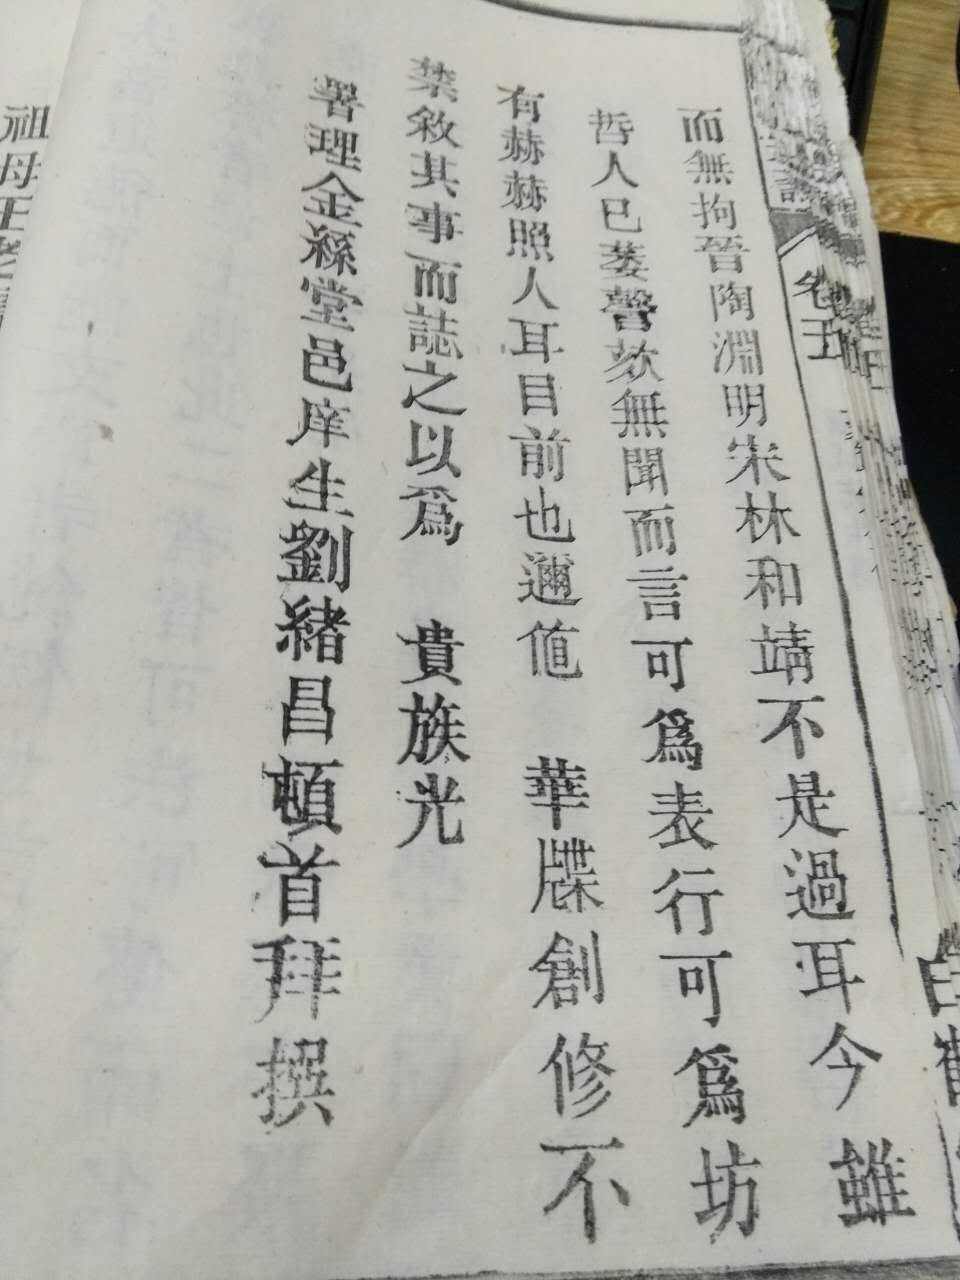 卷五
而無拘晉陶淵明宋林和靖不是過耳今雖
哲人已萎謦欬無聞而言可為表行可為坊
有赫赫照人耳目前也邇值華牒創修不
禁敘其事而誌之以為貴族光
署理金縣堂邑庠生劉緒昌頓首拜撰
祖母王